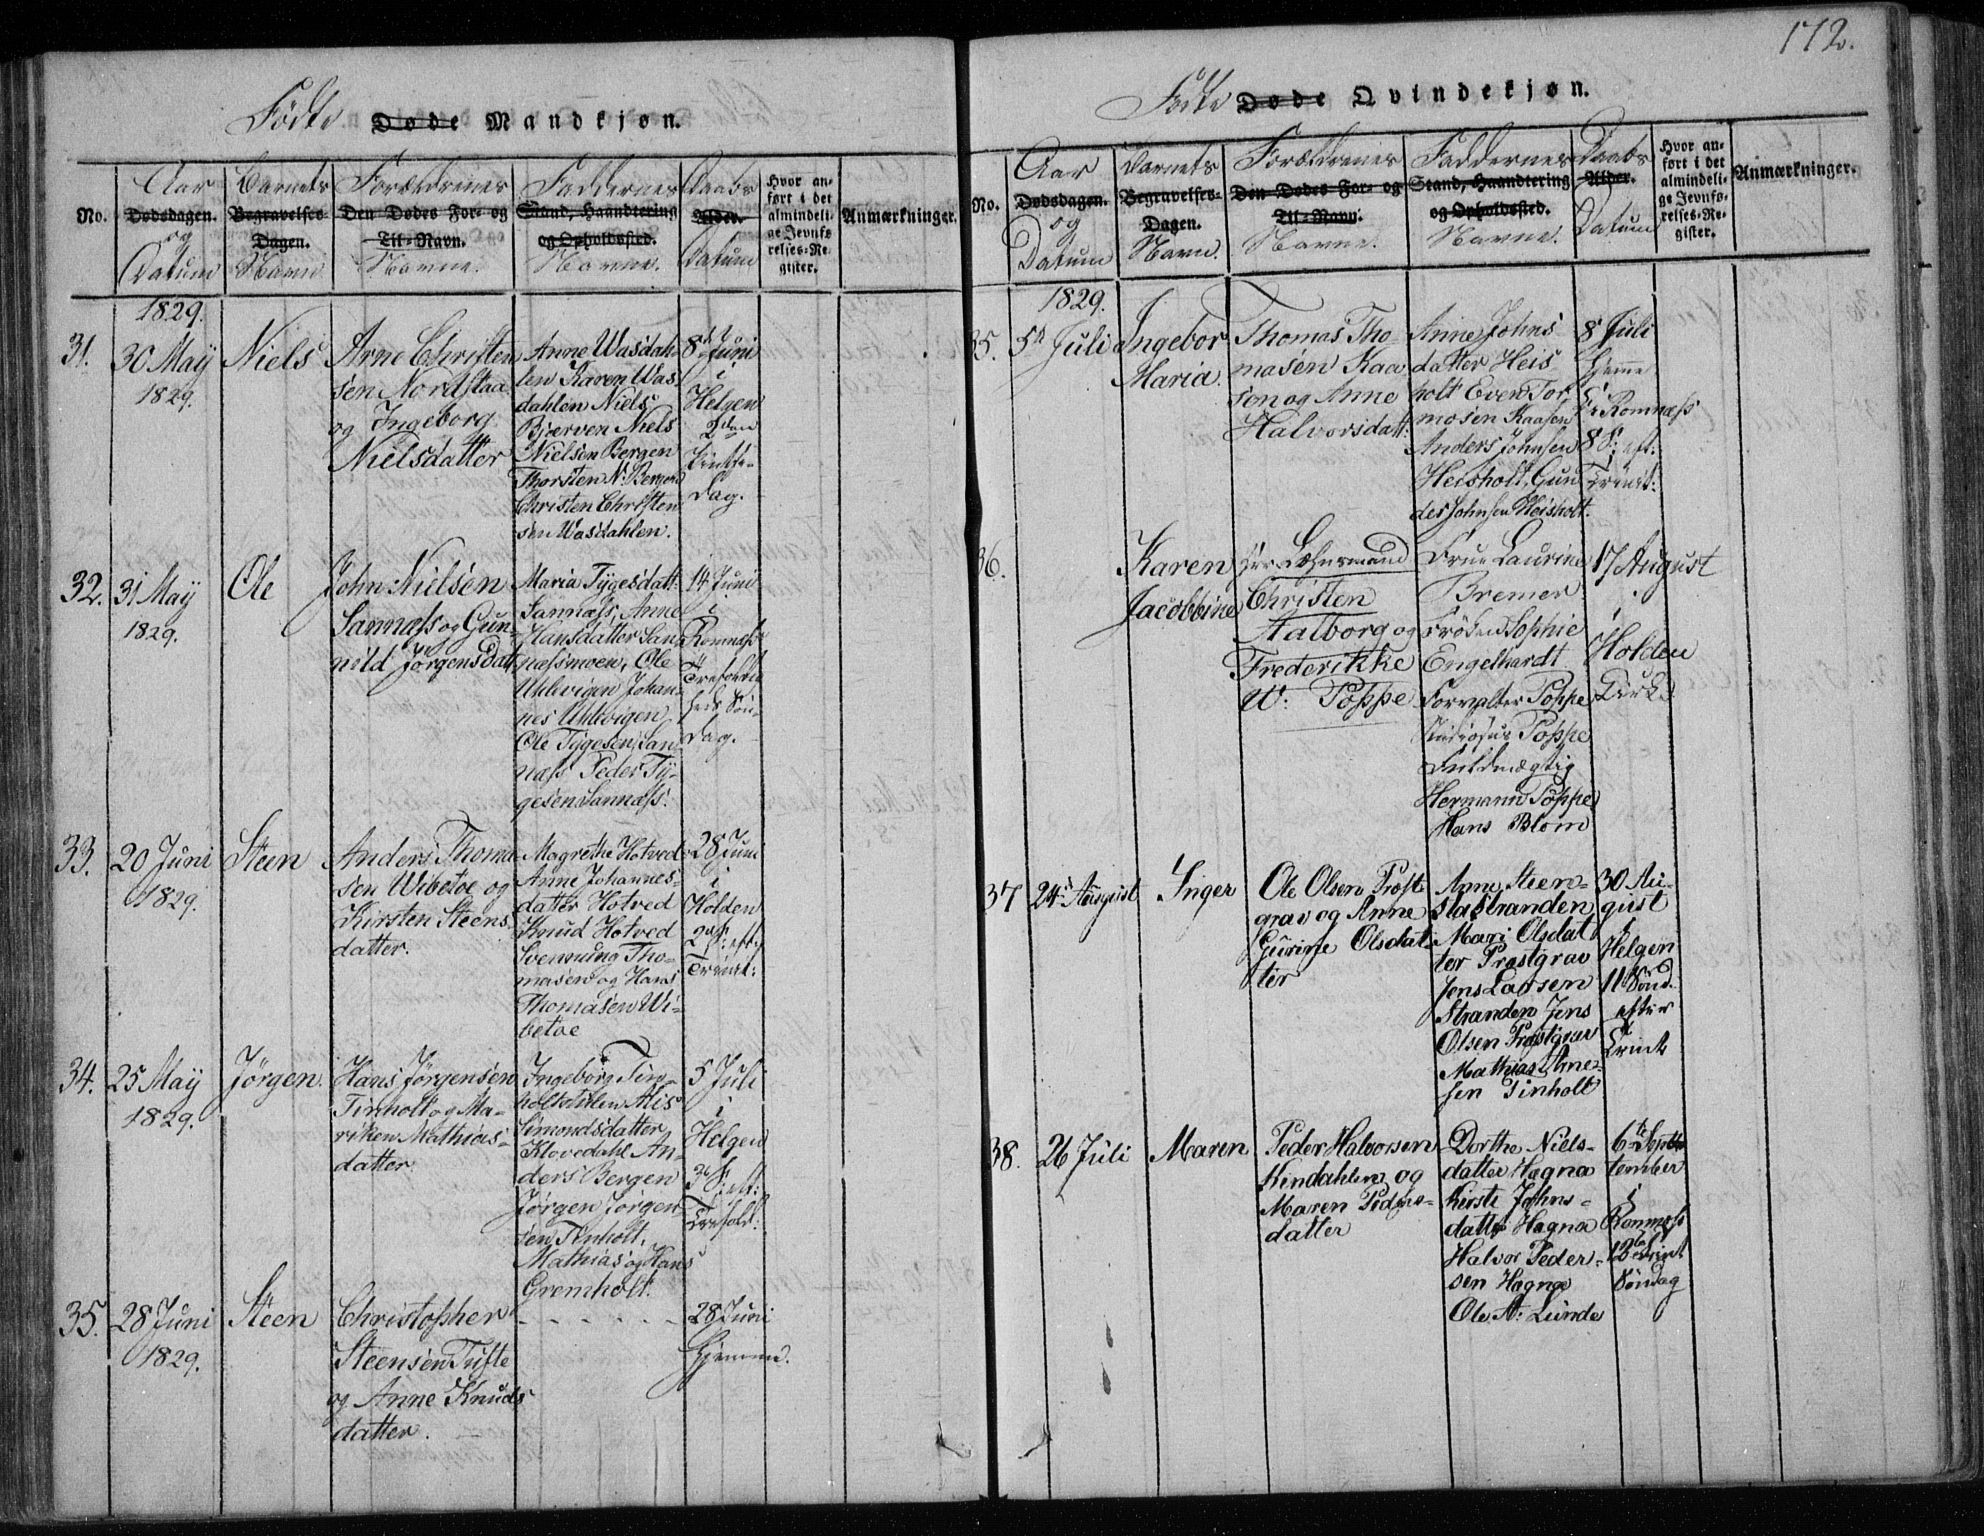 Födte Døde Mandkjøn.
No.
Aar
Dødsdagen.
og
Datum
Barnets
Begravelses-
Dagen.
Navn
Forældrenes
Den Dødes For- og
Til-Navn.
Navne.
Faddernes
Stand, Haandtering
og Opholdssted.
Navne.
Daabs
Alder.
Datum
Hvor an-
ført i det
almindeli-
ge Jevnfø-
relses-Re-
gister.
Anmærkninger.
1829.
31.
30 May
1829.
Niels
Arne Christen
sen Nordstaa
og Ingeborg
Nielsdatter
Anne Wasdah
len Karen Was
dahlen Niels
Bjærven Niels
Nielsen Bergen
Thorsten N: Bergen
Christen Christen
sen Wasdahlen.
8 Juni
i
Helgen
2den
Pintse-
dag.
32.
31 May
1829.
Ole
John Nielsen
Sannæss og Gun-
nild Jörgensdatt.
Maria Tygesdatt:
Sannæss, Anne
Hansdatter San
næssmoen, Ole
Uhlevigen Johan-
nes Uhlevigen
Ole Tygesen San
næss Peder Ty-
gesen Sannæss.
14 Juni
i
Romnæss
Trefoldig
heds Sön-
dag.
33.
20 Juni
1829.
Steen
Anders Thoma
sen Wibetoe og
Kirsten Steens
datter.
Magrethe Hotved
Anne Johannes-
datter Hotved
Knud Hotved
Svennung Tho-
masen og Hans
Thomasen Wi-
betoe
28 Juni
i
Holden
2 S: eft:
Trinit:
34.
25 May
1829.
Jörgen.
Hans Jörgensen
Tinholt og Ma-
riken Mathias-
datter
Ingeborg Tin-
holt Alis
Simondsdatter
Klovedahl An-
ders Bergen
Jörgen Jörgen
sen Tinholt,
Mathias og Hans
Gremholt.
5 Juli
i
Helgen
3 S: eft:
Trefold:
35.
28 Juni
1829.
Steen
Christopher
Steensen Tufte
og Anne Knuds
datter.
- - - - - -
28 Juni
Hjemme.
172.
Födte Døde Qvindekjøn.
No.
Aar
Dødsdagen.
og
Datum
Barnets
Begravelses-
Dagen.
Navn.
Forældrenes
Den Dødes For- og
Til-Navn.
Navne.
Faddernes
Stand, Haandtering
og Opholdssted.
Navne.
Daabs
Alder.
Datum
Hvor an-
ført i det
almindeli-
ge Jevnfø-
relses-Re-
gister.
Anmærkninger.
1829.
35.
5 Juli
Ingebor
Maria.
Thomas Tho-
masen Kaa
sen og Anne
Halvorsdatt:
Anne Johns
datter Heis
holt Even Tor
mosen Kaasen
Anders Johnsen
Heisholt, Gun
der Johnsen Heisholt.
8 Juli
Hjemme
Romnæss
8 S: eft:
Trinit:
36.
Karen
Jacobbine
Hr Lehnsmand
Christen
Aalborg og
Frederikke
W. Poppe
Frue Laurine
Bremer
Fröken Sophie
Engelhardt
Forvalter Poppe
Studiosus Poppe
Fuldmægtig
Hermann Poppe
Hans Blom
17 August
i
Holden
Kirke
37
24 August
Inger
Ole Olsen Præst
grav og Anne
Gurine Olsdat-
ter
Anne Steen-
sla Stranden
Mari Olsdat
ter Præstgrav
Jens Larsen
Stranden Jens
Olsen Præstgrav
Mathias Arne-
sen Tinholt
30 Au-
gust
i
Helgen
11 Sönd.
efter
Trint
38.
26 Juli
Maren
Peder Halvorsen
Kindahlen og
Maren Peders-
datter
Dorthe Niels-
datter Hagna
Kirsti Johns-
datter Hagna
Halvor Peder-
sen Hagna
Ole A: Lunde
6te Sept
tember
i
Romnæss
12 Trint
Söndag